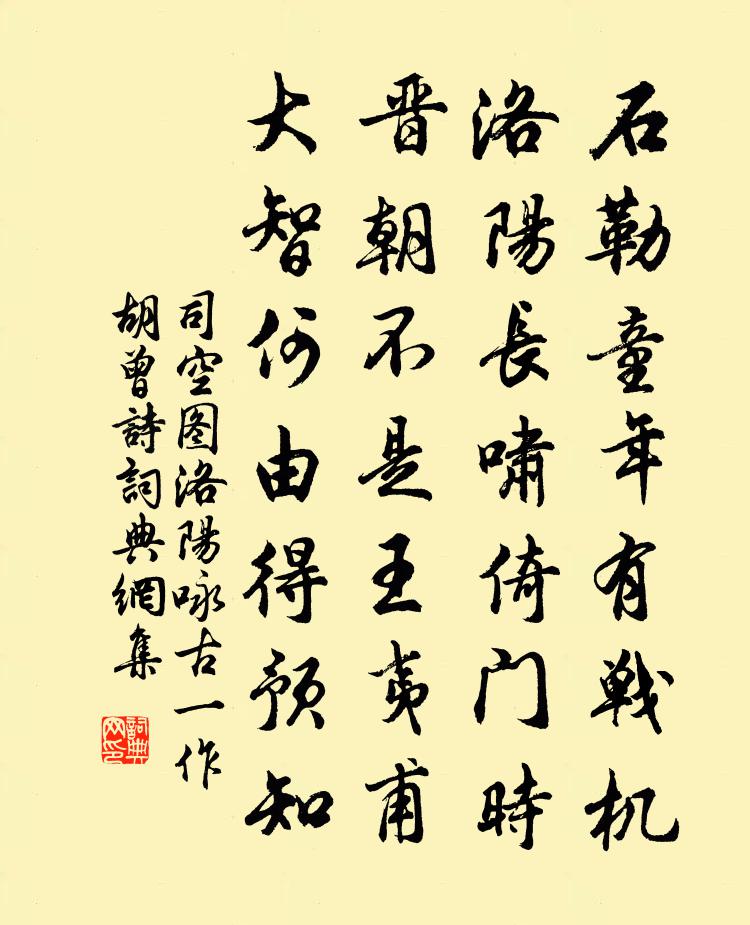 石勒童年有戦机
洛陽長啸倚门時
晋朝不是王夷甫
大智何由得预知
司空图洛陽咏古一作
胡曾詩詞典網集
詞典
网印